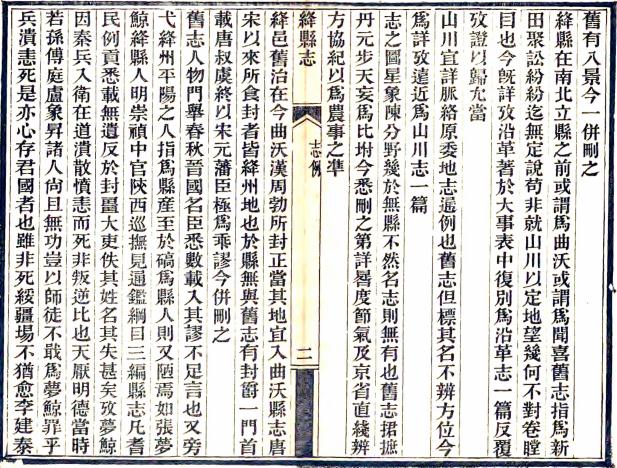 舊有八景今一併刪之
絳縣在南北立縣之前或謂爲曲沃或謂爲聞喜舊志指爲新
田聚訟紛紛迄無定說苟非就山川以定地望幾何不對卷瞠
目也今旣詳攷沿革著於大事表中復別爲沿革志一篇反覆
攷證以歸允當
山川宜詳脈絡原委地志通例也舊志但標其名不辨方位今
爲詳攷遠近爲山川志一篇
志之圖星象陳分野幾於無縣不然名志則無有也舊志捃摭
丹元步天妄爲比坿今悉刪之第詳晷度節氣及京省直綫辨
方協紀以爲農事之準
絳縣志
志例
二
絳邑舊治在今曲沃漢周勃所封正當其地宜入曲沃縣志唐
宋以來所食封者皆絳州地也於縣無與舊志有封爵一門首
載唐叔虞終以宋元藩臣極爲乖謬今併刪之
舊志人物門舉春秋晉國名臣悉數載入其謬不足言也又旁
弋絳州平陽之人指爲縣産至於碻爲縣人則又陋焉如張夢
鯨絳縣人明崇禎中官陝西巡撫見通鑑綱目三編縣志凡耆
民例貢悉載無遺反於封畺大吏佚其姓名其失甚矣攷夢鯨
因秦兵入衛在道潰散憤恚而死非叛逆比也天厭明德當時
若孫傅庭盧象昇諸人尚且無功豈以師徒不戢爲夢鯨罪乎
兵潰恚死是亦心存君國者也雖非死綏疆場不猶愈李建泰